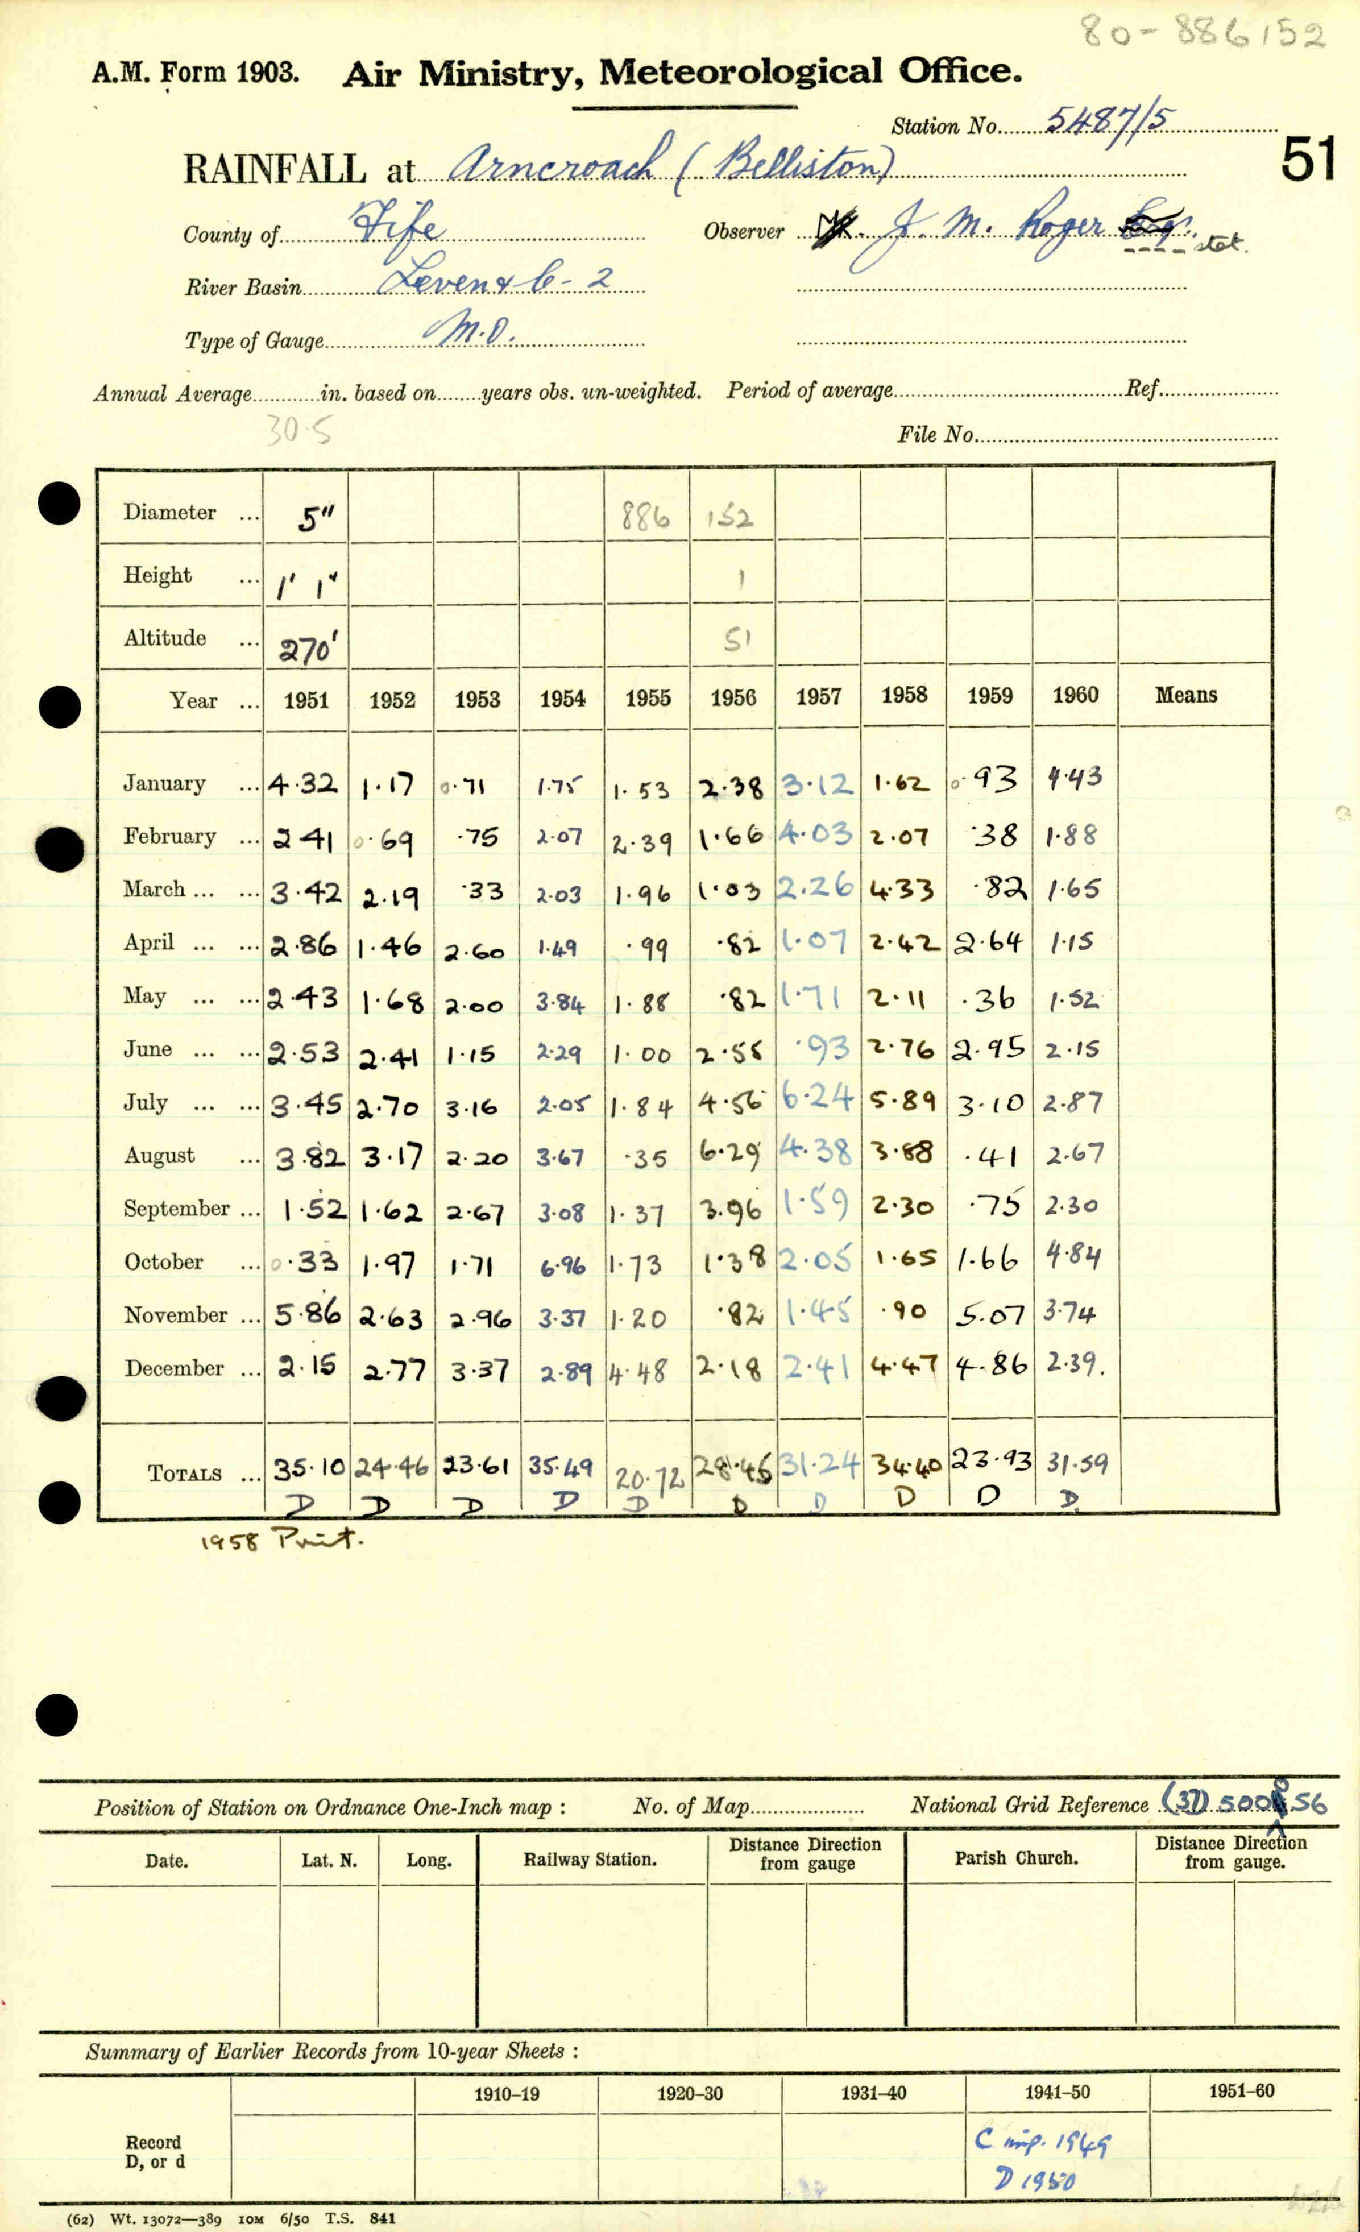 80-886152
A.M. Form 1903. Air Ministry, Meteorological Office.
Station No. 5487/5
51
RAINFALL at Arncroach (Belliston)
County of Fife Observer J. M. Roger Esqr. stet.
River Basin Leven & C-2
Type of Gauge M.O.
Annual Average in. based on years obs. un-weighted. Period of average Ref.
30.5
File No.
Diameter ... 5" 886 152
Height ... 1' 1" 1
Altitude ... 270' 51
Year ... 1951 1952 1953 1954 1955 1956 1957 1958 1959 1960 Means
January ... 4.32 1.17 0.71 1.75 1.53 2.38 3.12 1.62 0.93 4.43
February ... 2.41 0.69 .75 2.07 2.39 1.66 4.03 2.07 .38 1.88
March ... ... 3.42 2.19 .33 2.03 1.96 1.03 2.26 4.33 .82 1.65
April ... ... 2.86 1.46 2.60 1.49 .99 .82 1.07 2.42 2.64 1.15
May ... ... 2.43 1.68 2.00 3.84 1.88 .82 1.71 2.11 .36 1.52
June ... ... 2.53 2.41 1.15 2.29 1.00 2.55 .93 2.76 2.95 2.15
July ... ... 3.45 2.70 3.16 2.05 1.84 4.56 6.24 5.89 3.10 2.87
August ... 3.82 3.17 2.20 3.67 .35 6.29 4.38 3.88 .41 2.67
September ... 1.52 1.62 2.67 3.08 1.37 3.96 1.59 2.30 .75 2.30
October ... 0.33 1.97 1.71 6.96 1.73 1.38 2.05 1.65 1.66 4.84
November ... 5.86 2.63 2.96 3.37 1.20 .82 1.45 .90 5.07 3.74
December ... 2.15 2.77 3.37 2.89 4.48 2.18 2.41 4.47 4.86 2.39.
TOTALS ... 35.10 24.46 23.61 35.49 20.72 28.45 31.24 34.40 23.93 31.59
D D D D D D D D D D
1958 Print.
Position of Station on Ordnance One-Inch map : No. of Map National Grid Reference (37) 500 056
Date. Lat. N. Long. Railway Station. Distance Direction from gauge Parish Church. Distance Direction from gauge.
Summary of Earlier Records from 10-year Sheets :
1910–19 1920–30 1931–40 1941–50 1951–60
Record
D, or d
C inp. 1949
D 1950
(62) Wt. 13072—389 10M 6/50 T.S. 841